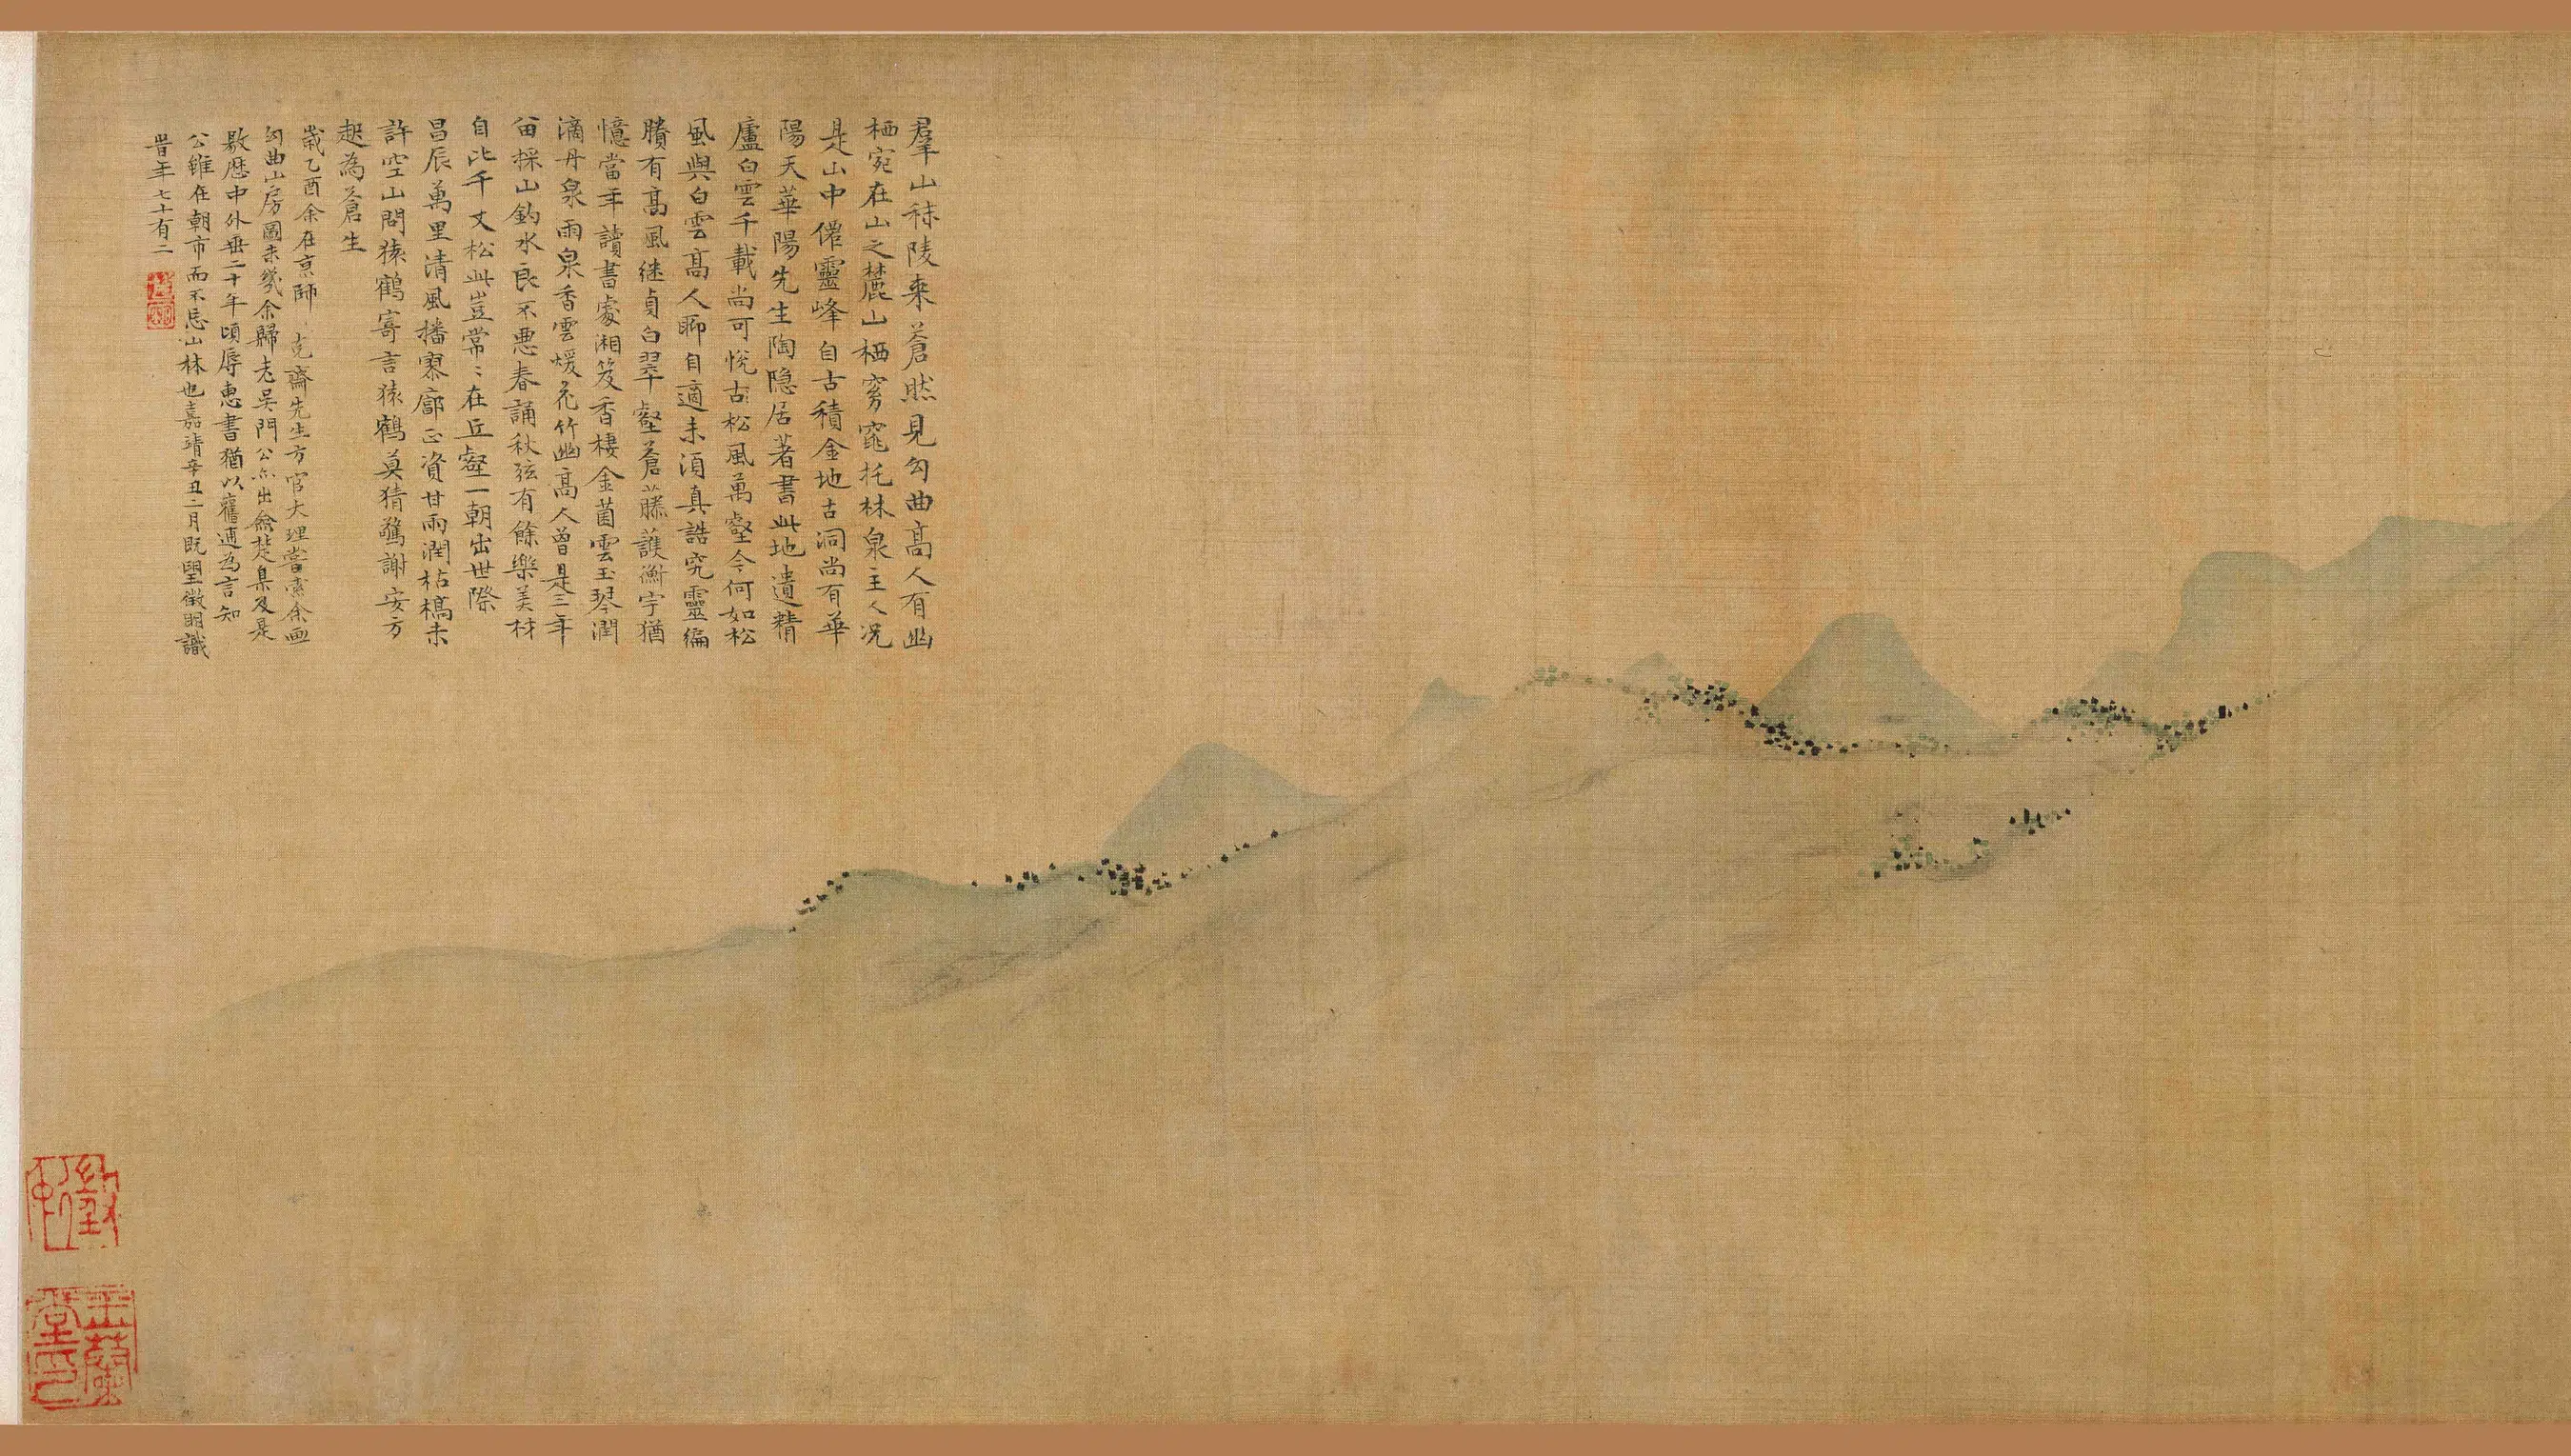 羣山秣陵來蒼然見勾曲高人有幽
栖宛在山之麓山栖窈窕托林泉主人況
是山中僊靈峰自古積金地古洞尚有華
陽天華陽先生陶隐居著書此地遺精
廬白雲千載尚可悅古松風萬壑今何如松
風與白雲高人聊自適未須真誥究靈編
賸有高風継貞白翠壑蒼藤護衡宇猶
憶當年讀書處湘笈香棲金菌雲玉琴潤
滴丹泉雨泉香雲煖花竹幽高人曾是三年
留採山釣水良不悪春誦秋弦有餘樂美材
自比千丈松此豈常〻在丘壑一朝出世際
昌辰萬里清風播寥廓正資甘雨潤枯槁未
許空山問猿鶴寄言猿鶴莫猜驚謝安方
起為蒼生
歲乙酉余在京師克齋先生方官大理嘗索余画
勾曲山房圖未幾余歸老吴門公亦出僉楚臬及是
敭歴中外垂二十年頃辱惠書猶以舊逋為言知
公雖在朝市而不忘山林也嘉靖辛丑二月既望徵明識
皆年七十有二
徵明
玉蘭堂印